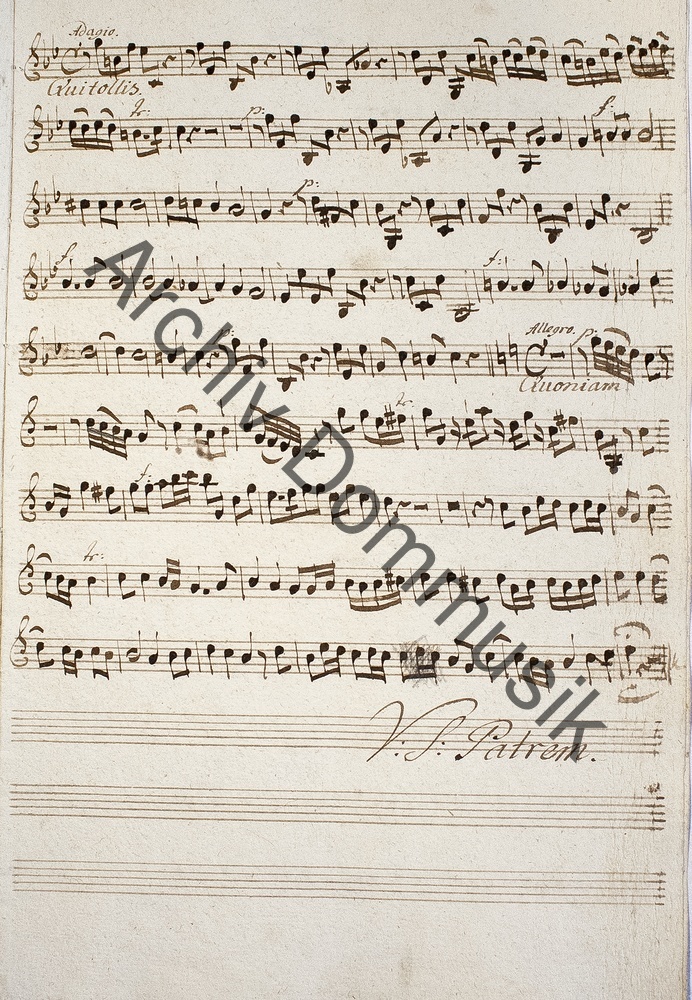 Adagio.
Quitollis.
tr: p: f:
p:
f. f:
p: Allegro. p:
Quoniam
tr:
f:
tr:
V: S: Patrem.
Archiv Dommusik